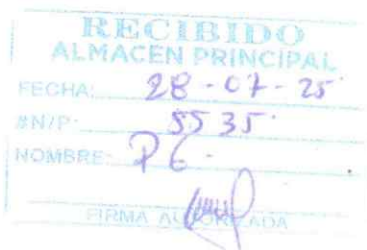 RECIBIDO
ALMACEN PRINCIPAL
FECHA: 28-07-25
#N/P: 5535
NOMBRE: P6-
FIRMA AUTORIZADA